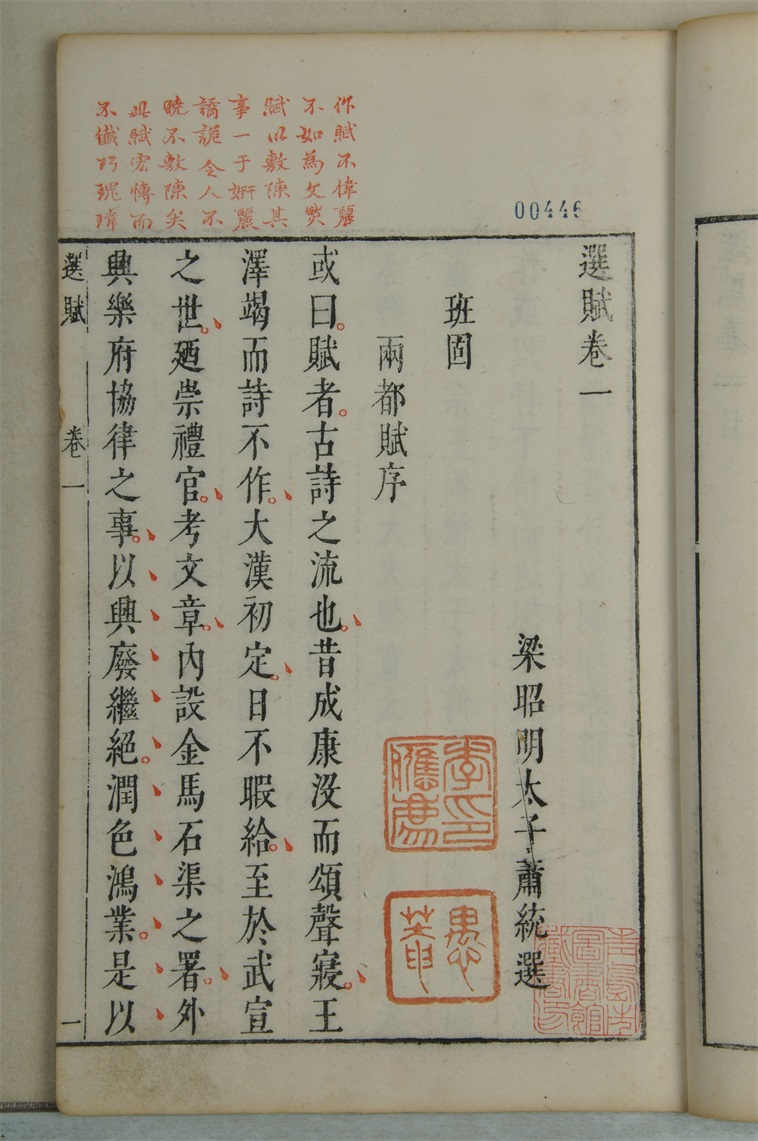 作賦不偉麗
不如為文然
賦以敷陳其
事一于妍麗
譎詭令人不
曉不敷陳矣
此賦宏博而
不纖巧瑰瑋
00446
選賦卷一
梁昭明太子蕭統選
班固
兩都賦序
或曰賦者古詩之流也昔成康沒而頌聲寢王
澤竭而詩不作大漢初定日不暇給至於武宣
之世廼崇禮官考文章內設金馬石渠之署外
興樂府協律之事以興廢繼絕潤色鴻業是以
選賦 卷一 一